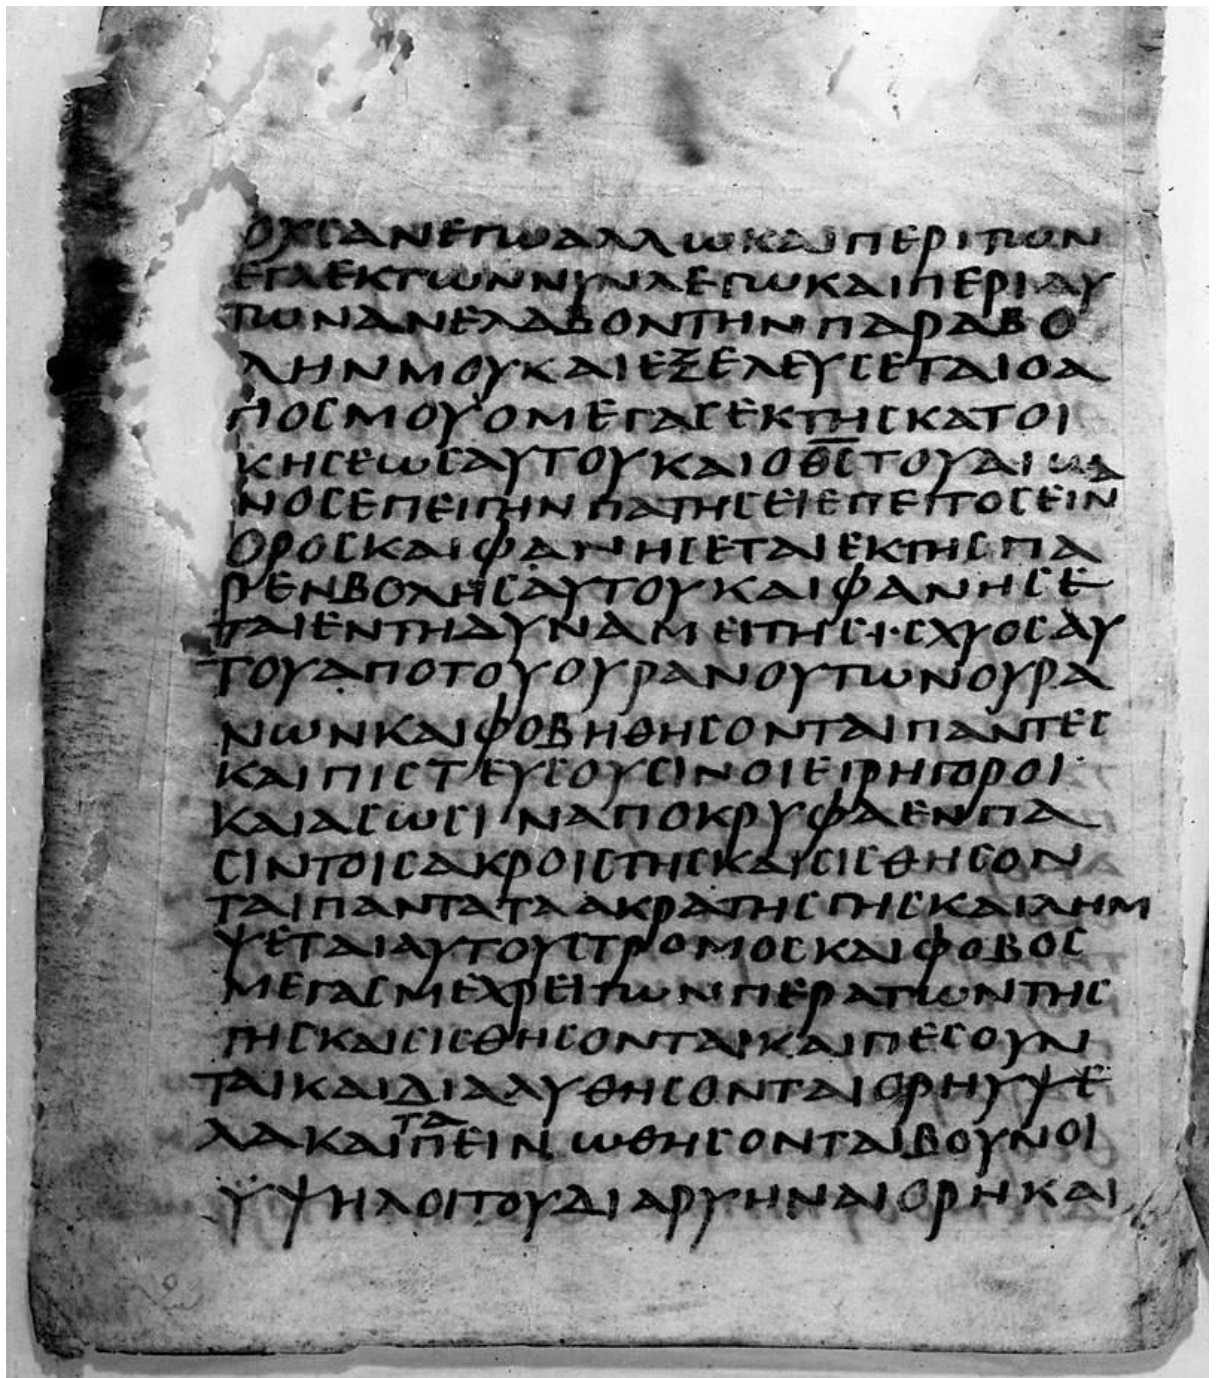 ΟΥϹΑΝΕΓΩΑΛΛΩΚΑΙΠΕΡΙΤΩΝ
ΕΓΛΕΚΤΩΝΝΥΝΛΕΓΩΚΑΙΠΕΡΙΑΥ
ΤΩΝΑΝΕΛΑΒΟΝΤΗΝΠΑΡΑΒΟ
ΛΗΝΜΟΥΚΑΙΕΞΕΛΕΥϹΕΤΑΙΟΑ
ΓΙΟϹΜΟΥΟΜΕΓΑϹΕΚΤΗϹΚΑΤΟΙ
ΚΗϹΕΩϹΑΥΤΟΥΚΑΙΟΘ̅Ϲ̅ΤΟΥΑΙΩ
ΝΟϹΕΠΕΙΓΗΝΠΑΤΗϹΕΙΕΠΕΙΤΟϹΕΙΝΑ
ΟΡΟϹΚΑΙΦΑΝΗϹΕΤΑΙΕΚΤΗϹΠΑ
ΡΕΝΒΟΛΗϹΑΥΤΟΥΚΑΙΦΑΝΗϹΕ
ΤΑΙΕΝΤΗΔΥΝΑΜΕΙΤΗϹ·Ι·ϹΧΥΟϹΑΥ
ΤΟΥΑΠΟΤΟΥΟΥΡΑΝΟΥΤΩΝΟΥΡΑ
ΝΩΝΚΑΙΦΟΒΗΘΗϹΟΝΤΑΙΠΑΝΤΕϹ
ΚΑΙΠΙϹΤΕΥϹΟΥϹΙΝΟΙΕΓΡΗΓΟΡΟΙ
ΚΑΙΑϹΩϹΙΝΑΠΟΚΡΥΦΑΕΝΠΑ
ϹΙΝΤΟΙϹΑΚΡΟΙϹΤΗϹΚΑΙϹΙϹΘΗϹΟΝ
ΤΑΙΠΑΝΤΑΤΑΑΚΡΑΤΗϹΓΗϹΚΑΙΛΗΜ
ΨΕΤΑΙΑΥΤΟΥϹΤΡΟΜΟϹΚΑΙΦΟΒΟϹ
ΜΕΓΑϹΜΕΧΡΕΙΤΩΝΠΕΡΑΤΩΝΤΗϹ
ΓΗϹΚΑΙϹΙϹΘΗϹΟΝΤΑΙΚΑΙΠΕϹΟΥΝ
ΤΑΙΚΑΙΔΙΑΛΥΘΗϹΟΝΤΑΙΟΡΗΥΨΕ
ΛΑΚΑΙΤΑΠΕΙΝΩΘΗϹΟΝΤΑΙΒΟΥΝΟΙ
ΫΨΗΛΟΙΤΟΥΔΙΑΡΥΗΝΑΙΟΡΗΚΑΙ